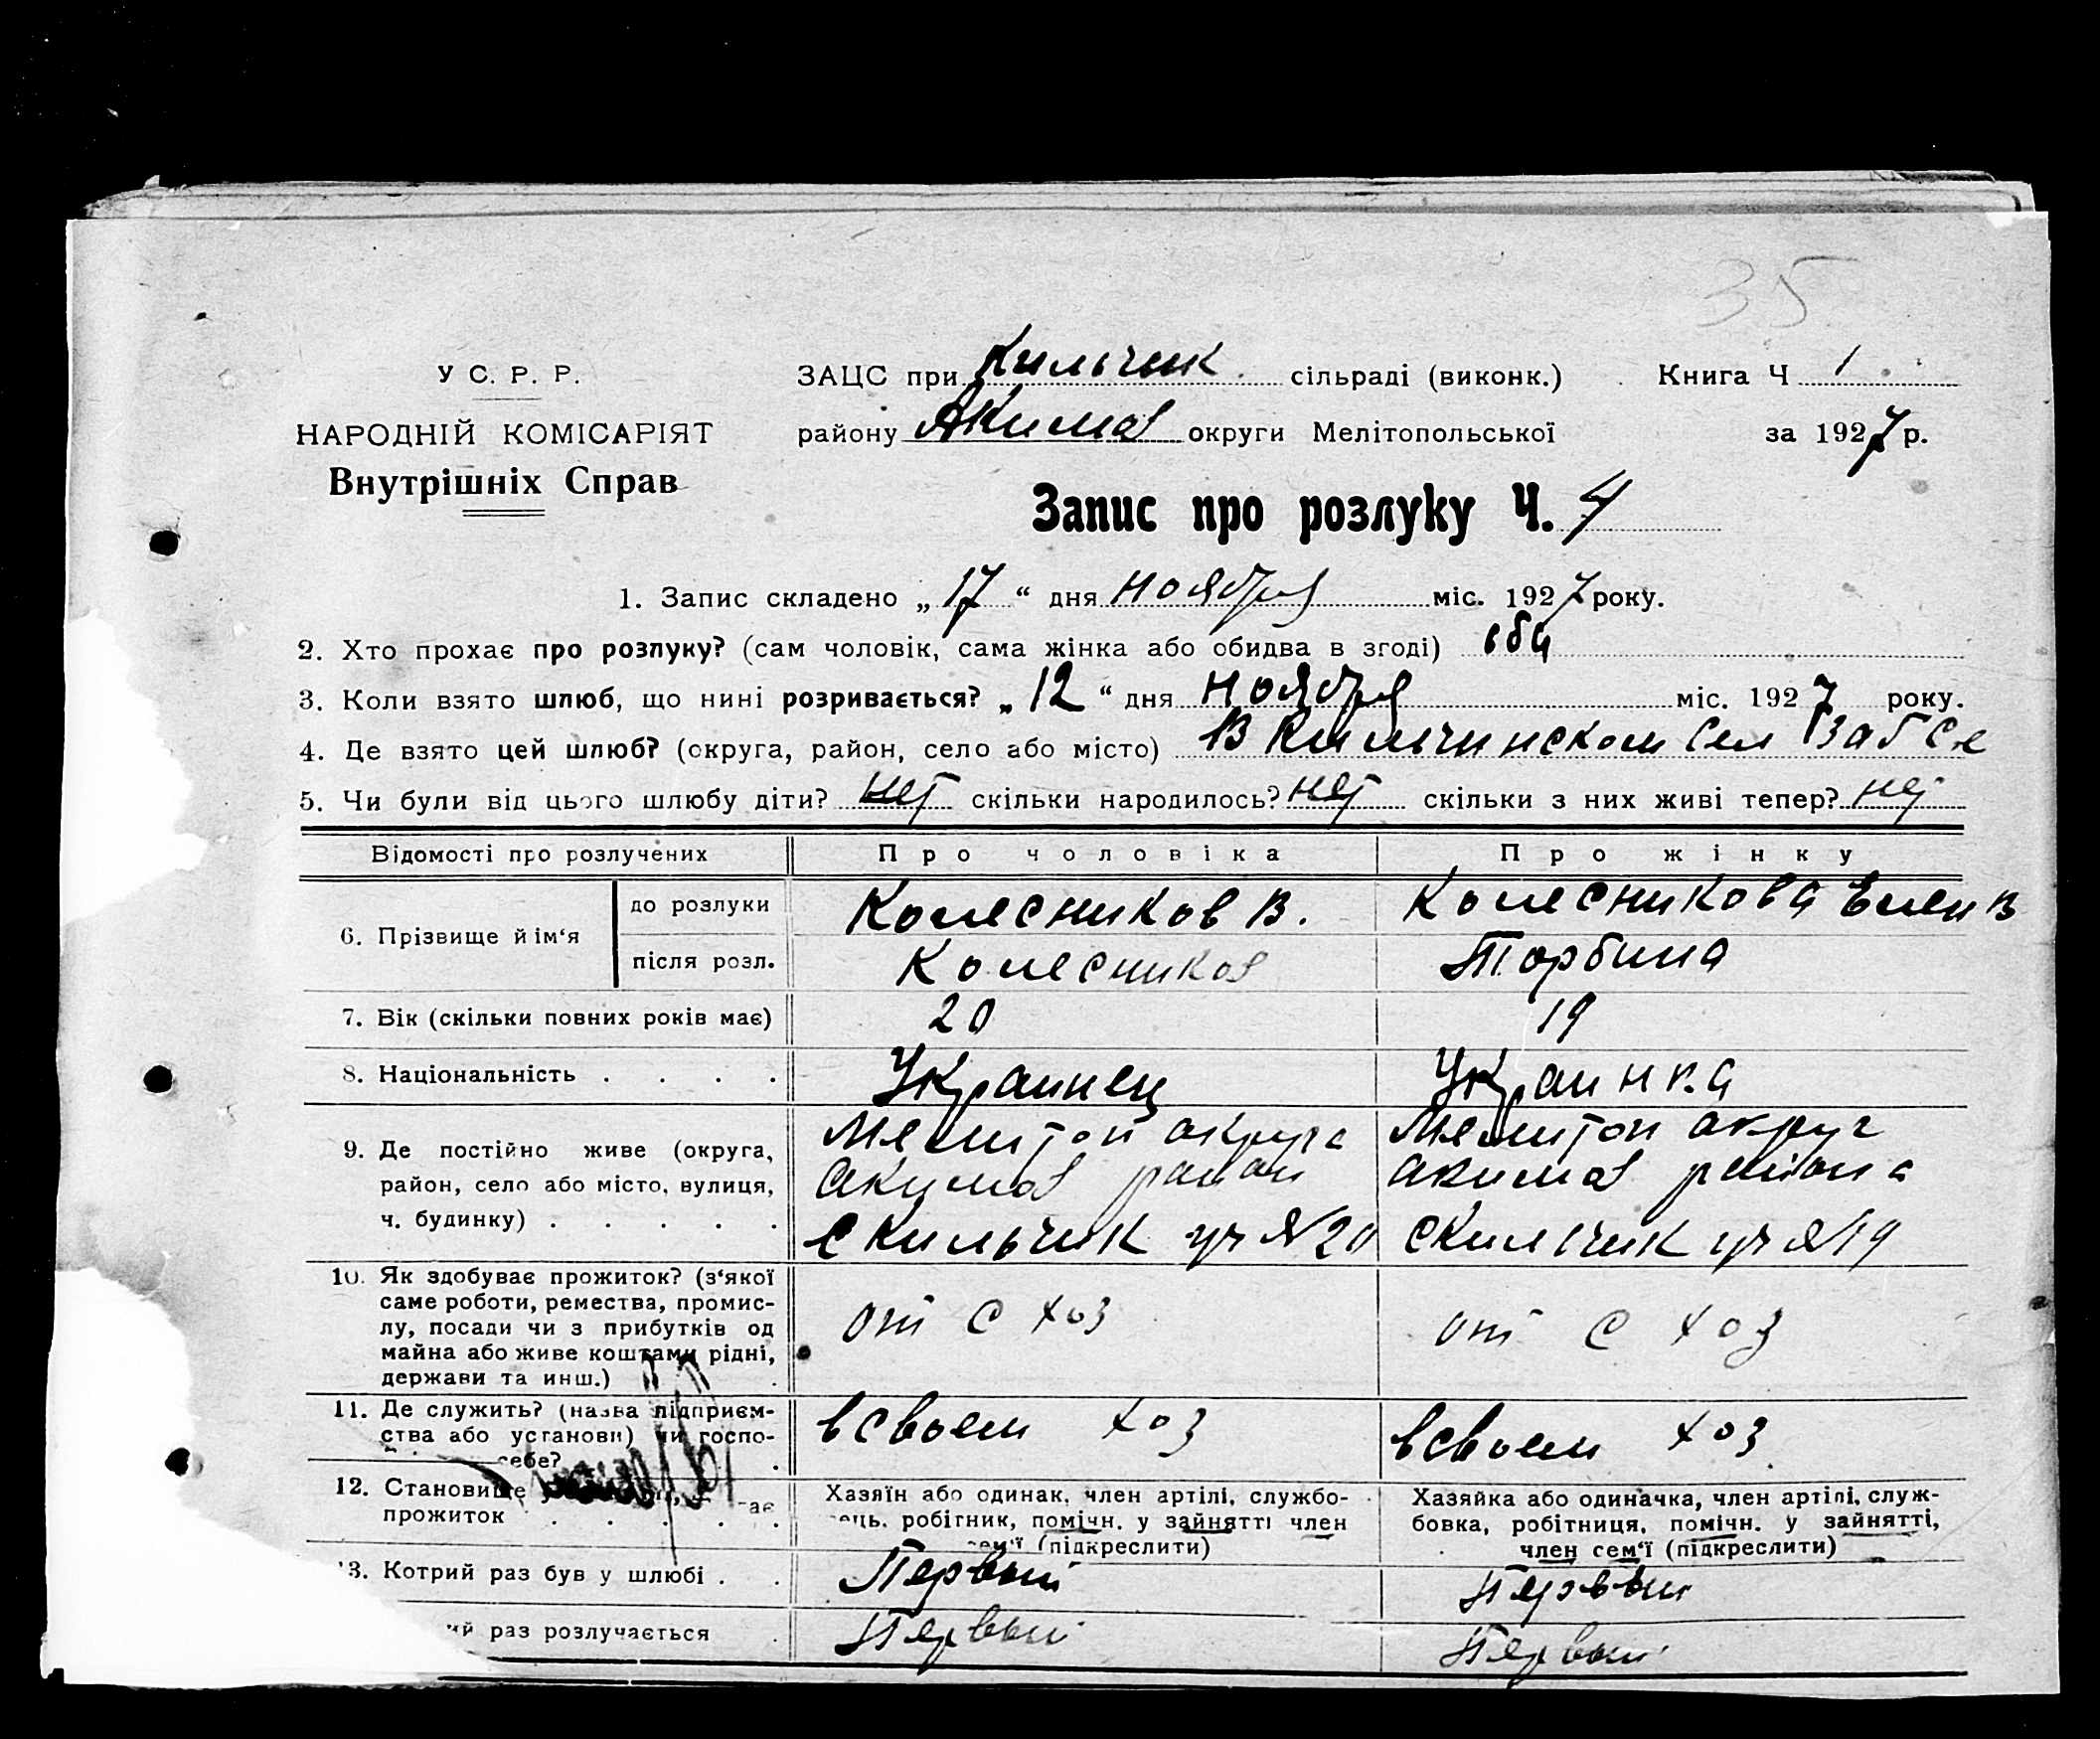 35
У С. Р. Р.
НАРОДНІЙ КОМІСАРІЯТ
Внутрішніх Справ
ЗАЦС при Кильчик. сільраді (виконк.) Книга Ч 1
району Акимов округи Мелітопольської за 1927 р.
Запис про розлуку Ч. 4
1. Запис складено „17“ дня ноября міс. 1927 року.
2. Хто прохає про розлуку? (сам чоловік, сама жінка або обидва в згоді) оба
3. Коли взято шлюб, що нині розривається? „12“ дня ноября міс. 1927 року.
4. Де взято цей шлюб? (округа, район, село або місто) В Кильчинском Сел
5. Чи були від цього шлюбу діти? нет скільки народилось? нет скільки з них живі тепер? нет
Відомості про розлучених Про чоловіка Про жінку
6. Прізвище й ім‘я
до розлуки Колесников В. Колесникова Елен В
після розл. Колесников Торбина
7. Вік (скільки повних років має) 20 19
8. Національність . . . . Украинец Украинка
9. Де постійно живе (округа,
район, село або місто, вулиця,
ч. будинку) . . . . .
Мелитоп округа
Акимов район
С Кильчик уч № 20
Мелитоп округ
Акимов района
С Кильчик уч № 19
10. Як здобуває прожиток? (з‘якої
саме роботи, ремества, промис-
лу, посади чи з прибутків од
майна або живе коштами рідні,
держави та инш.)
от с хоз
от с хоз
11. Де служить? (назва підприєм-
ства або установи) чи госпо-
себе?
в своем хоз
в своем хоз
12. Становище
прожиток . . . .
Хазяїн або одинак, член артілі, службо-
ець, робітник, помічн. у зайнятті член
сем‘ї (підкреслити)
Хазяйка або одиначка, член артілі, служ-
бовка, робітниця, помічн. у зайнятті,
член сем‘ї (підкреслити)
13. Котрий раз був у шлюбі . . Первый Первый
ий раз розлучається . Первый Первый